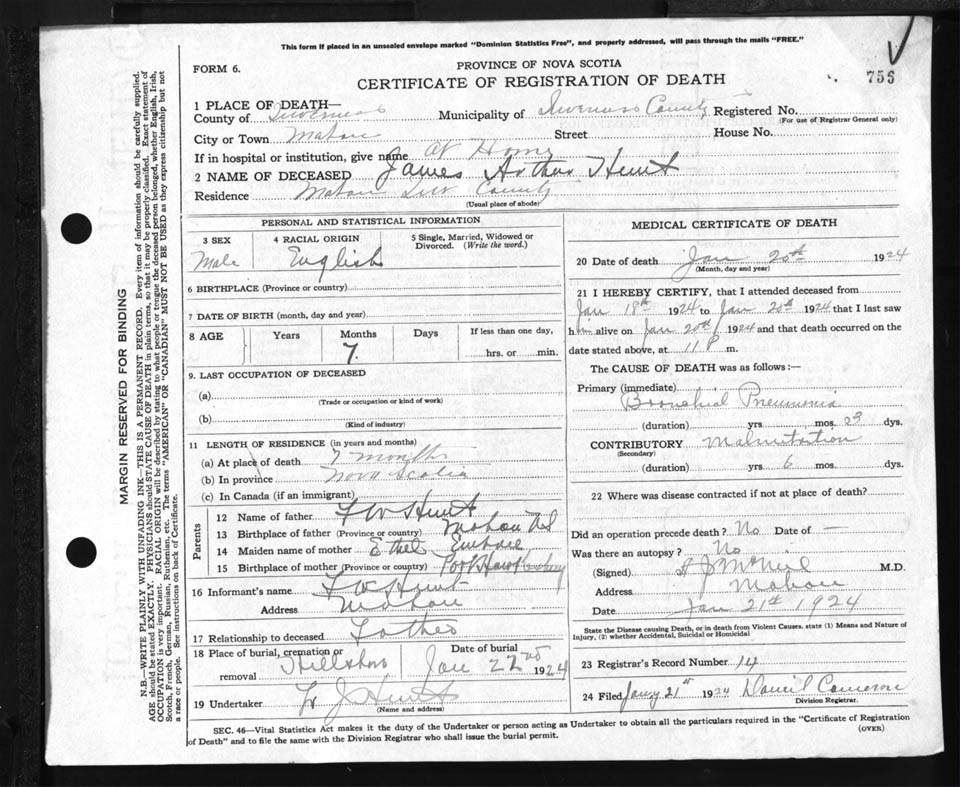 This form if placed in an unsealed envelope marked "Dominion Statistics Free", and properly addressed, will pass through the mails "FREE."
FORM 6.
PROVINCE OF NOVA SCOTIA
CERTIFICATE OF REGISTRATION OF DEATH
756
1 PLACE OF DEATH—
County of Inverness Municipality of Inverness County Registered No.
(For use of Registrar General only)
City or Town Mabou Street House No.
If in hospital or institution, give name At Home
2 NAME OF DECEASED James Arthur Hunt
Residence Mabou Inv County
(Usual place of abode)
PERSONAL AND STATISTICAL INFORMATION
3 SEX Male
4 RACIAL ORIGIN English
5 Single, Married, Widowed or Divorced. (Write the word.)
6 BIRTHPLACE (Province or country)
7 DATE OF BIRTH (month, day and year)
8 AGE Years Months Days If less than one day,
7 hrs. or min.
9. LAST OCCUPATION OF DECEASED
(a)
(Trade or occupation or kind of work)
(b)
(Kind of industry)
11 LENGTH OF RESIDENCE (in years and months)
(a) At place of death 7 months
(b) In province Nova Scotia
(c) In Canada (if an immigrant)
Parents
12 Name of father F W Hunt
13 Birthplace of father (Province or country) Mabou
14 Maiden name of mother Ethel Embree
15 Birthplace of mother (Province or country) Port Hawkesbury
16 Informant's name F W Hunt
Address Mabou
17 Relationship to deceased Father
18 Place of burial, cremation or removal Hillsboro
Date of burial Jan 22nd 1924
19 Undertaker J Hunt
(Name and address)
MEDICAL CERTIFICATE OF DEATH
20 Date of death Jan 20th 1924
(Month, day and year)
21 I HEREBY CERTIFY, that I attended deceased from
Jan 18th 1924 to Jan 20th 1924 that I last saw
him alive on Jan 20th 1924 and that death occurred on
date stated above, at 11 P m.
The CAUSE OF DEATH was as follows:—
Primary (immediate)
Bronchial Pneumonia
(duration) yrs. mos. 23 dys.
CONTRIBUTORY Malnutrition
(Secondary)
(duration) yrs. 6 mos. dys.
22 Where was disease contracted if not at place of death?
Did an operation precede death? No Date of —
Was there an autopsy? No
(Signed) J McNeil M.D.
Address Mabou
Date Jan 21st 1924
State the Disease causing Death, or in death from Violent Causes. state (1) Means and Nature of
Injury, (2) whether Accidental, Suicidal or Homicidal
23 Registrar's Record Number 14
24 Filed Jany 21st 1924 Daniel Cameron
Division Registrar.
SEC. 46—Vital Statistics Act makes it the duty of the Undertaker or person acting as Undertaker to obtain all the particulars required in the "Certificate of Registration
of Death" and to file the same with the Division Registrar who shall issue the burial permit.
(OVER)
MARGIN RESERVED FOR BINDING
N.B.—WRITE PLAINLY WITH UNFADING INK—THIS IS A PERMANENT RECORD. Every item of information should be carefully supplied.
AGE should be stated EXACTLY. PHYSICIANS should STATE CAUSE OF DEATH in plain terms, so that it may be properly classified. Exact statement of
OCCUPATION is very important. RACIAL ORIGIN will be described by stating to what people or tongue the deceased person belonged, whether English, Irish,
Scotch, French, German, Russian, Ruthenian, etc. The terms "AMERICAN" OR "CANADIAN" MUST NOT BE USED as they express citizenship but not
a race or people. See instructions on back of Certificate.